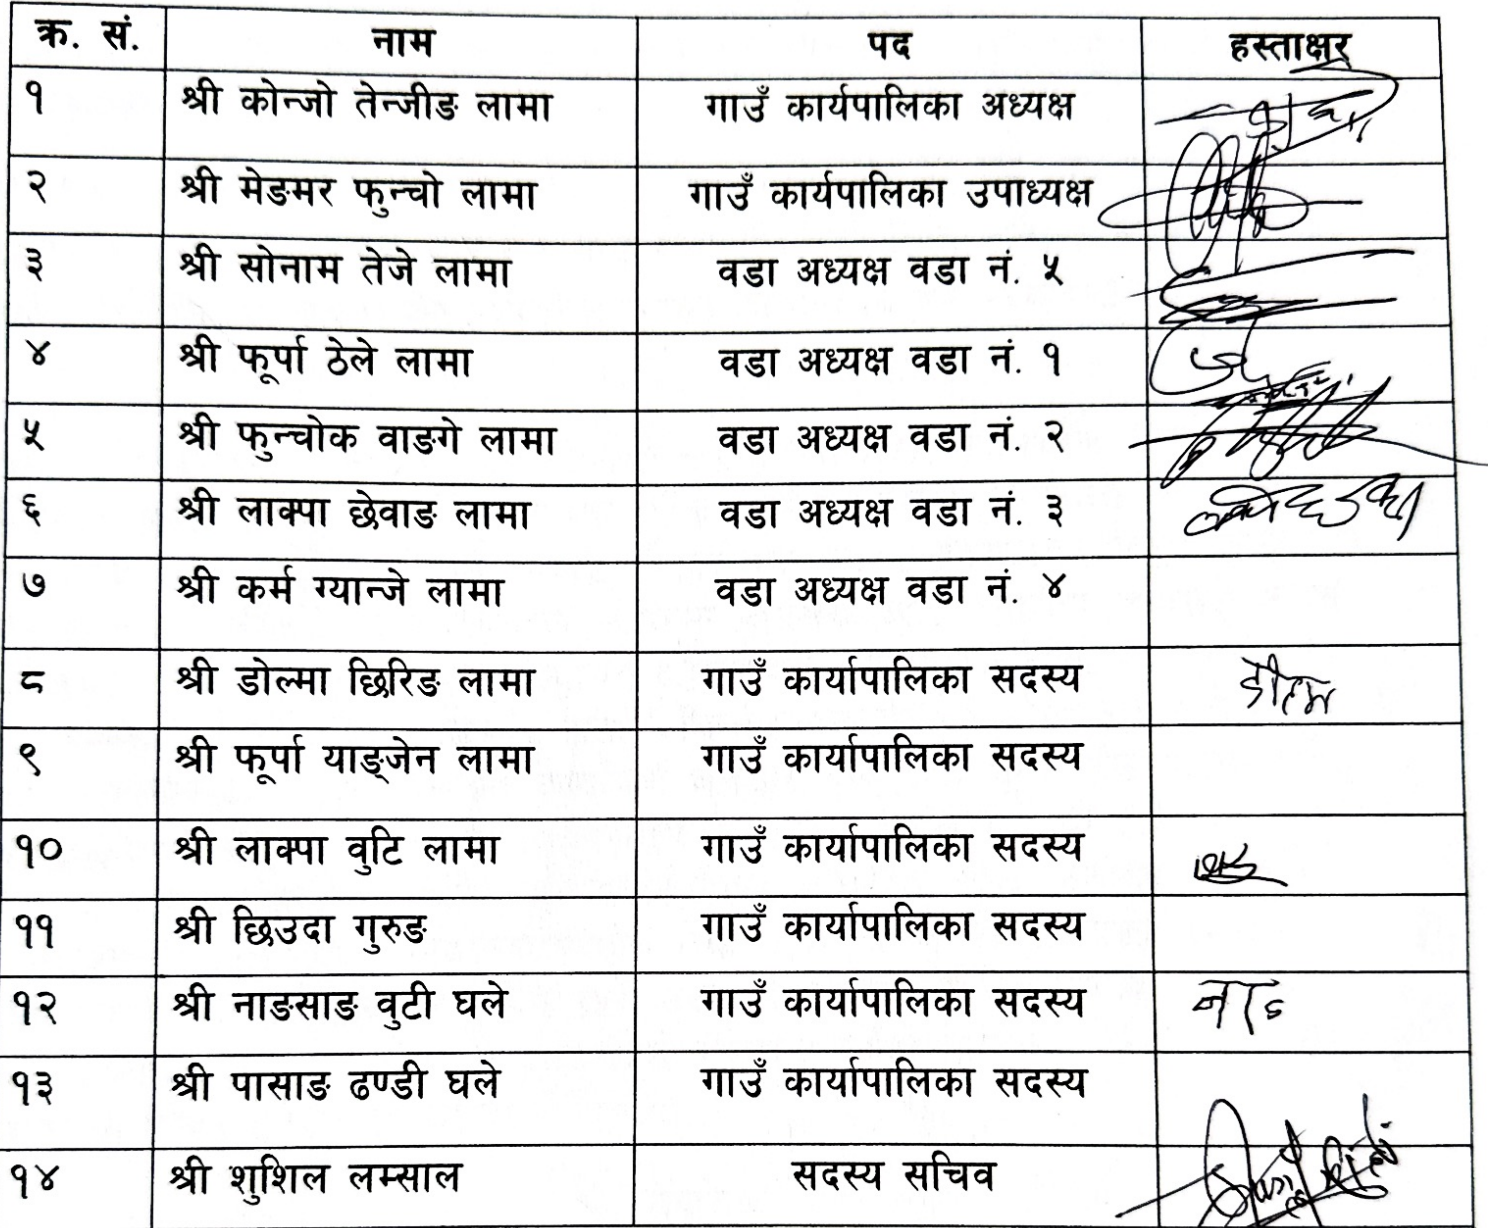 क्र. सं. नाम पद हस्ताक्षर
१ श्री कोन्जो तेन्जीङ लामा गाउँ कार्यपालिका अध्यक्ष
२ श्री मेङमर फुन्चो लामा गाउँ कार्यपालिका उपाध्यक्ष
३ श्री सोनाम तेजे लामा वडा अध्यक्ष वडा नं. ५
४ श्री फूर्पा ठेले लामा वडा अध्यक्ष वडा नं. १
५ श्री फुन्चोक वाङगे लामा वडा अध्यक्ष वडा नं. २
६ श्री लाक्पा छेवाङ लामा वडा अध्यक्ष वडा नं. ३
७ श्री कर्म ग्यान्जे लामा वडा अध्यक्ष वडा नं. ४
८ श्री डोल्मा छिरिङ लामा गाउँ कार्यापालिका सदस्य
९ श्री फूर्पा याङ्जेन लामा गाउँ कार्यापालिका सदस्य
१० श्री लाक्पा वुटि लामा गाउँ कार्यापालिका सदस्य
११ श्री छिउदा गुरुङ गाउँ कार्यापालिका सदस्य
१२ श्री नाङसाङ वुटी घले गाउँ कार्यापालिका सदस्य
१३ श्री पासाङ ढण्डी घले गाउँ कार्यापालिका सदस्य
१४ श्री शुशिल लम्साल सदस्य सचिव